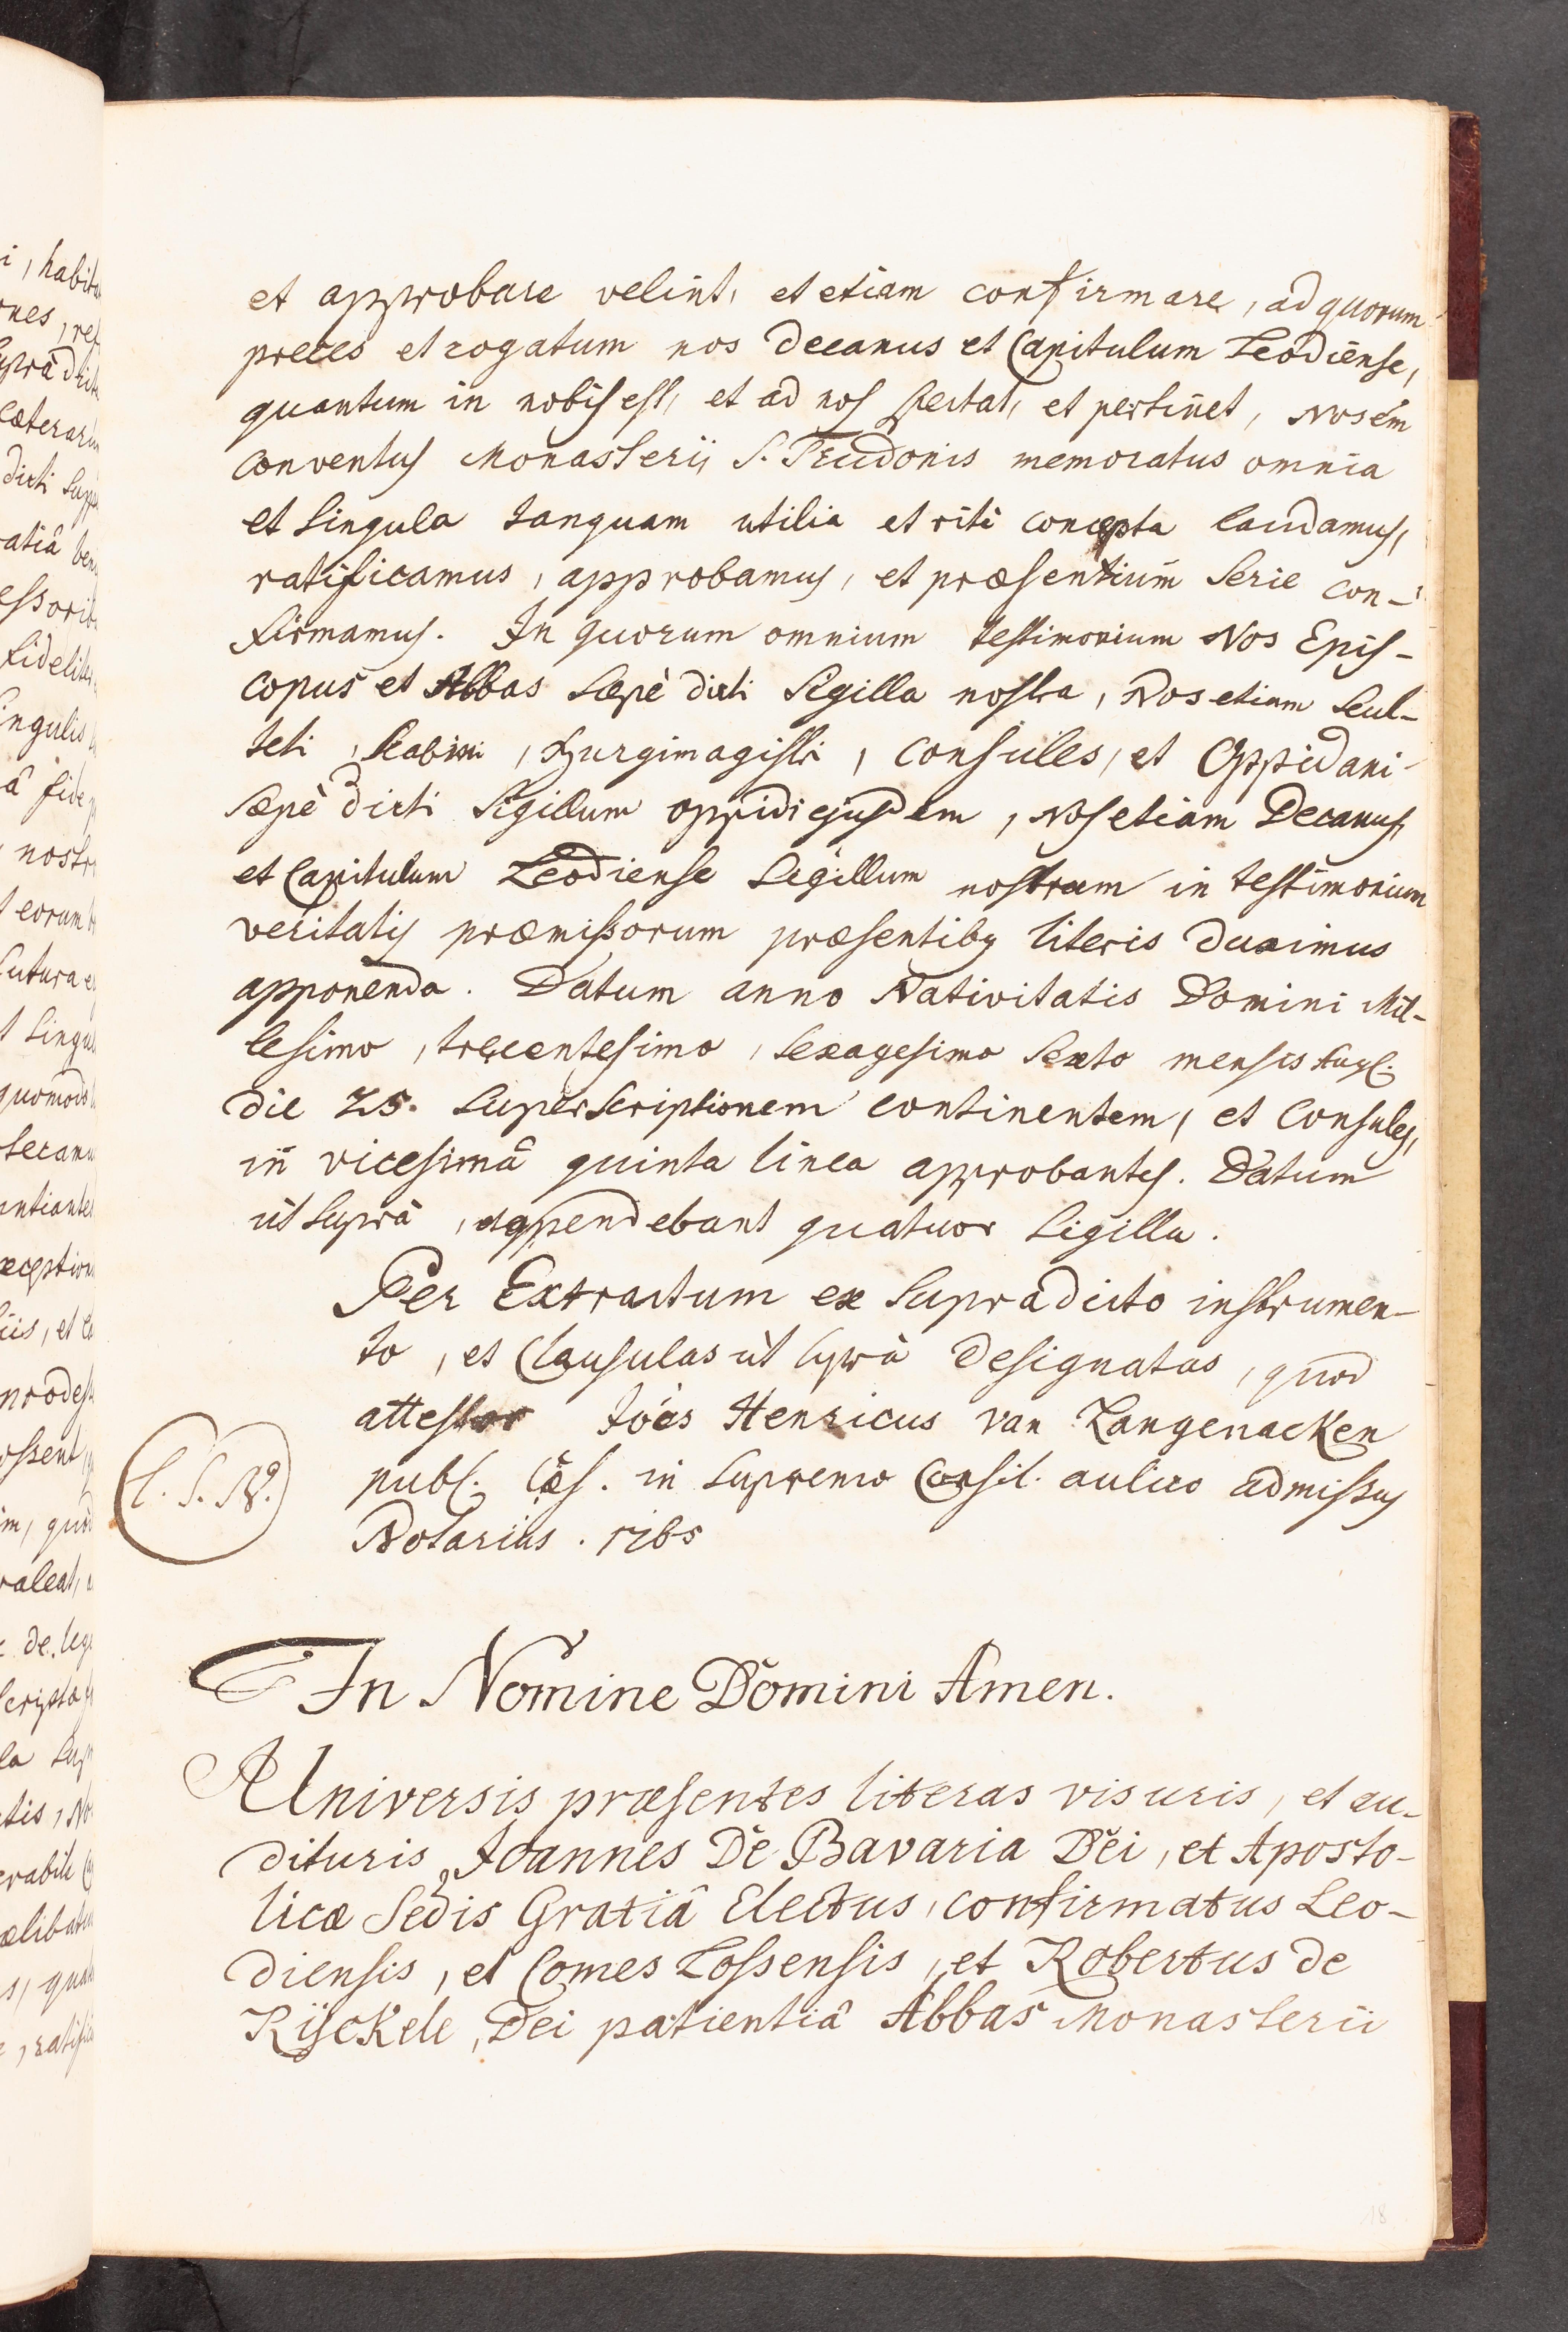 et approbare velint, et etiam confirmare, ad quorum
preces et rogatum nos Decanus et Capitulum Leodiense,
quantum in nobis est, et ad nos spectat, et pertinet, Nos ēm
Conventus Monasterij S. Trudonis memoratus omnia
et singula tanquam utilia et ritè concepta laudamus,
ratificamus, approbamus, et præsentium serie con-
firmamus. In quorum omnium testimonium Nos Epis-
copus et Abbas sæpè dicti Sigilla nostra, Nos etiam Scul-
teti, Scabini, Burgimagistri, Consules, et Oppidani
sæpè dicti Sigillum oppidi ejusdem, Nos etiam Decanus,
et Capitulum Leodiense Sigillum nostrum in testimonium
veritatis præmissorum præsentibus literis duximus
apponenda. Datum anno Nativitatis Domini Mil-
lesimo, trecentesimo, sexagesimo sexto mensis Augs.
die 25. superscriptionem continentem, et Consules,
in vicesimâ quinta linea approbantes. Datum
ut suprà, appendebant quatuor sigilla.
Per Extractum ex supradicto instrumen-
to, et Clausulas ut suprà designatas, quod
attestor Joēs Henricus van Langenacken
publ. Cæs. in supremo Consil. aulico admissus
Notarius. 1765
(L. S. Nⁱ.)
In Nomine Domini Amen.
Universis præsentes literas visuris, et au-
dituris, Joannes De Bavaria Dei, et Aposto-
licæ Sedis Gratiâ Electus, confirmatus Leo-
diensis, et Comes Lossensis, et Robertus de
Rijckele, Dei patientiâ Abbas Monasterii
18